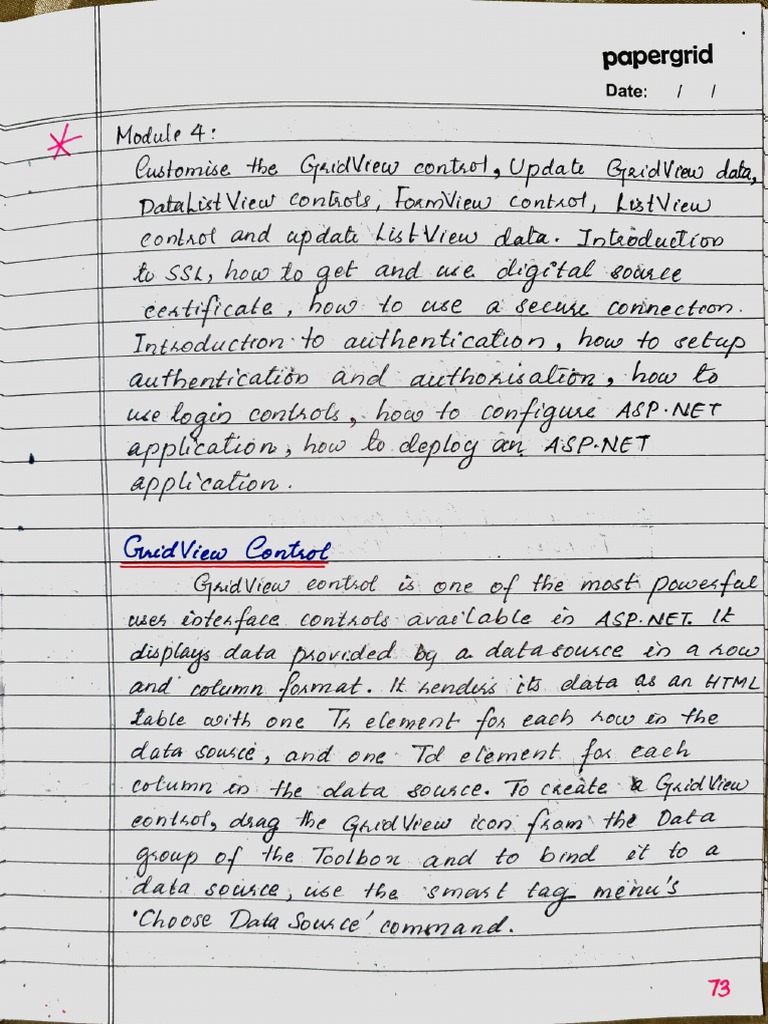 papergrid
Date: / /
Module 4:
Customise the GridView control, Update GridView data,
DataListView controls, FormView control, ListView
control and update ListView data. Introduction
to SSL, how to get and use digital source
certificate, how to use a secure connection.
Introduction to authentication, how to setup
authentication and authorisation, how to
use login controls, how to configure ASP.NET
application, how to deploy an ASP.NET
application.
GridView Control
GridView control is one of the most powerful
user interface controls available in ASP.NET. It
displays data provided by a datasource in a row
and column format. It renders its data as an HTML
table with one Tr element for each row in the
data source, and one Td element for each
column in the data source. To create a GridView
control, drag the GridView icon from the Data
group of the Toolbox and to bind it to a
data source, use the smart tag menu's
'Choose Data Source' command.
73